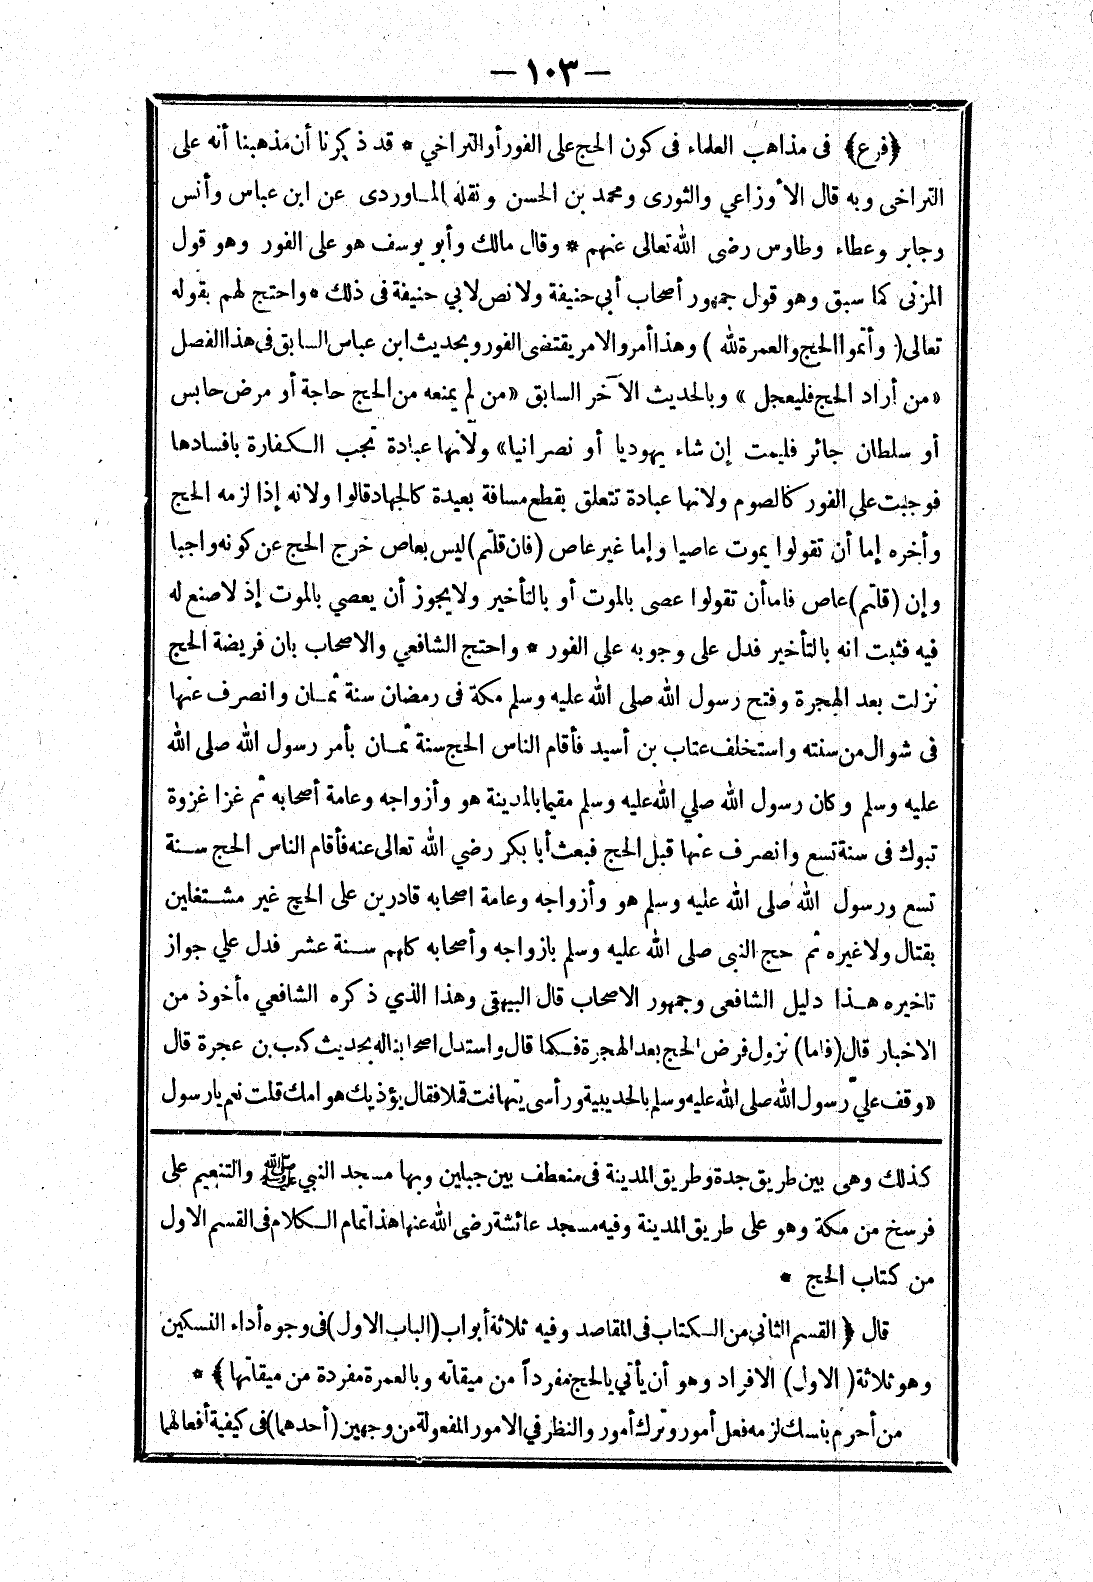 — ١٠٣ —
﴿فرع﴾ فى مذاهب العلماء فى كون الحج على الفور أو التراخي * قد ذكرنا أن مذهبنا أنه على
التراخى وبه قال الأوزاعي والثورى ومحمد بن الحسن ونقله المـاوردى عن ابن عباس وأنس
وجابر وعطاء وطاوس رضى الله تعالى عنهم * وقال مالك وأبو يوسف هو على الفور وهو قول
المزنى كما سبق وهو قول جمهور أصحاب أبي حنيفة ولا نص لابي حنيفة فى ذلك * واحتج لهم بقوله
تعالى ( وأتموا الحج والعمرة لله ) وهذا أمر والامر يقتضى الفور وبحديث ابن عباس السابق فى هذا الفصل
«من أراد الحج فليعجل » وبالحديث الآخر السابق «من لم يمنعه من الحج حاجة أو مرض حابس
أو سلطان جائر فليمت إن شاء يهوديا أو نصرانيا» ولأنها عبادة تجب الـكفارة بافسادها
فوجبت علي الفور كالصوم ولانها عبادة تتعلق بقطع مسافة بعيدة كالجهاد قالوا ولانه إذا لزمه الحج
وأخره إما أن تقولوا يموت عاصيا وإما غير عاص (فان قلتم) ليس بعاص خرج الحج عن كونه واجبا
وإن (قلتم) عاص فاما أن تقولوا عصى بالموت أو بالتأخير ولا يجوز أن يعصي بالموت إذ لا صنع له
فيه فثبت انه بالتأخير فدل على وجوبه علي الفور * واحتج الشافعي والاصحاب بان فريضة الحج
نزلت بعد الهجرة وفتح رسول الله صلى الله عليه وسلم مكة فى رمضان سنة ثمـان وانصرف عنها
فى شوال من سنته واستخلف عتاب بن أسيد فأقام الناس الحج سنة ثمـان بأمر رسول الله صلى الله
عليه وسلم وكان رسول الله صلي الله عليه وسلم مقيما بالمدينة هو وأزواجه وعامة أصحابه ثم غزا غزوة
تبوك فى سنة تسع وانصرف عنها قبل الحج فبعث أبا بكر رضي الله تعالى عنه فأقام الناس الحج سـنة
تسع ورسول الله صلى الله عليه وسلم هو وأزواجه وعامة اصحابه قادرين على الحج غير مشـتغلين
بقتال ولا غيره ثم حج النبى صلى الله عليه وسلم بازواجه وأصحابه كلهم سـنة عشر فدل علي جواز
تاخيره هـذا دليل الشافعى وجمهور الاصحاب قال البيهقى وهذا الذي ذكره الشافعي مأخوذ من
الاخبار قال (فاما) نزول فرض الحج بعد الهجرة فـكما قال واستدل اصحابنا له بحديث كعب بن عجرة قال
«وقف عليّ رسول الله صلى الله عليه وسلم بالحديبية ورأسى يتهافت قملا فقال يؤذيك هوامك قلت نعم يارسول
كذلك وهى بين طريق جدة وطريق المدينة فى منعطف بين جبلين وبها مسجد النبي ﷺ والتنعيم على
فرسخ من مكة وهو على طريق المدينة وفيه مسجد عائشة رضى الله عنها هذا تمام الـكلام فى القسم الاول
من كتاب الحج *
قال ﴿ القسم الثانى من الـكتاب فى المقاصد وفيه ثلاثة أبواب (الباب الاول) فى وجوه أداء النسكين
وهو ثلاثة (الاول) الافراد وهو أن يأتي بالحج مفرداً من ميقاته وبالعمرة مفردة من ميقاتها ﴾ *
من أحرم بنسك لزمه فعل أمور وترك أمور والنظر في الامور المفعولة من وجهين (أحدهما) فى كيفية أفعالهما